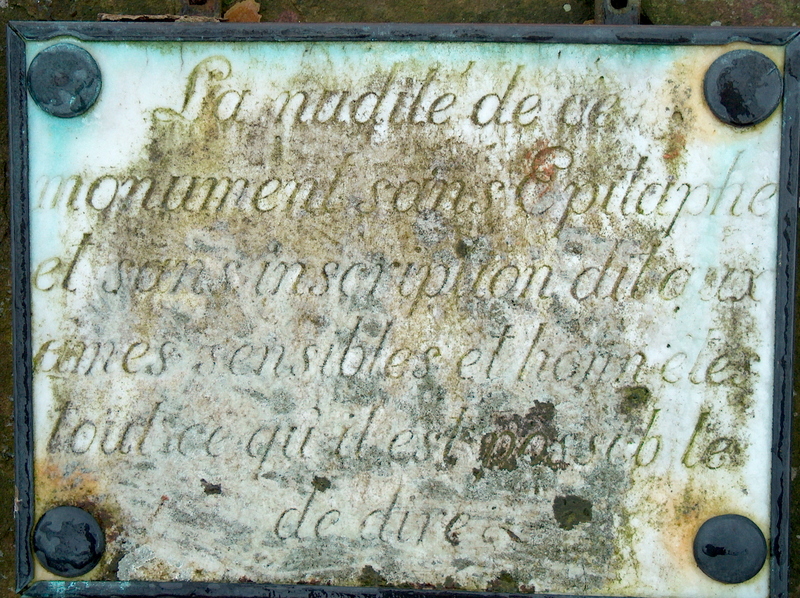 La nudité de ce
monument sans Epitaphe
et sans inscription dit aux
ames sensibles et honnêtes
tout ce qu'il est possible
de dire